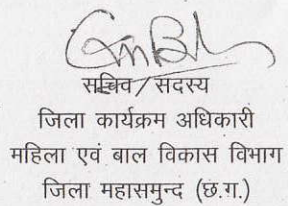 सचिव/सदस्य
जिला कार्यक्रम अधिकारी
महिला एवं बाल विकास विभाग
जिला महासमुन्द (छ.ग.)